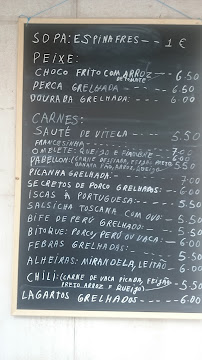 SOPA: ESPINAFRES--- 1 €
PEIXE:
CHOCO FRITO COM ARROZ DE TOMATE -- 6.50
PERCA GRELHADA---- 6.50
DOURADA GRELHADA--- 6.00
CARNES:
SAUTÉ DE VITELA - - - 5.50
FRANCESINHA - - - 7.00
OMELETE: QUEIJO E FIAMBRE - - 6.00
PABELLON: (CARNE DESFIADA, FEIJÃO PRETO BANANA PÃO, ARROZ, QUEIJO)
PICANHA GRELHADA - - - 7.00
SECRETOS DE PORCO GRELHADOS: - - 7.00
ISCAS À PORTUGUESA - - - 5.50
SALSICHA TOSCANA COM OVO: - - 5.50
BIFE DE PERÚ GRELHADO: - - - 5.50
BITOQUE: PORCO, PERU OU VACA: - - 6.00
FEBRAS GRELHADAS: - - - 5.50
ALHEIRAS: MIRANDELA, LEITÃO - - 6.00
CHILI: (CARNE DE VACA PICADA, FEIJÃO PRETO ARROZ E QUEIJO) - - 6.50
LAGARTOS GRELHADOS - - - 6.00